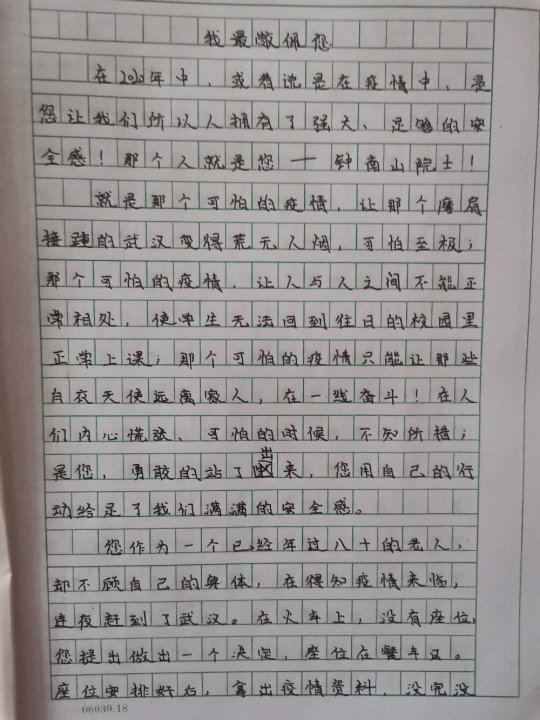 我最敬佩您
在2020年中,或者说是在疫情中,是
您让我们所以人拥有了强大、足够的安
全感!那个人就是您——钟南山院士!
就是那个可怕的疫情,让那个摩肩
接踵的武汉变得荒无人烟,可怕至极;
那个可怕的疫情,让人与人之间不能正
常相处,使学生无法回到往日的校园里
正常上课;那个可怕的疫情只能让那些
白衣天使远离家人,在一线奋斗!在人
们内心慌张、可怕的时候,不知所措;
是您,勇敢的站了出来,您用自己的行
动给足了我们满满的安全感。
您作为一个已经年过八十的老人,
却不顾自己的身体,在得知疫情来临,
连夜赶到了武汉。在火车上,没有座位,
您提出做出一个决定,座位在餐车口。
座位安排好后,拿出疫情资料,没完没
06039.18